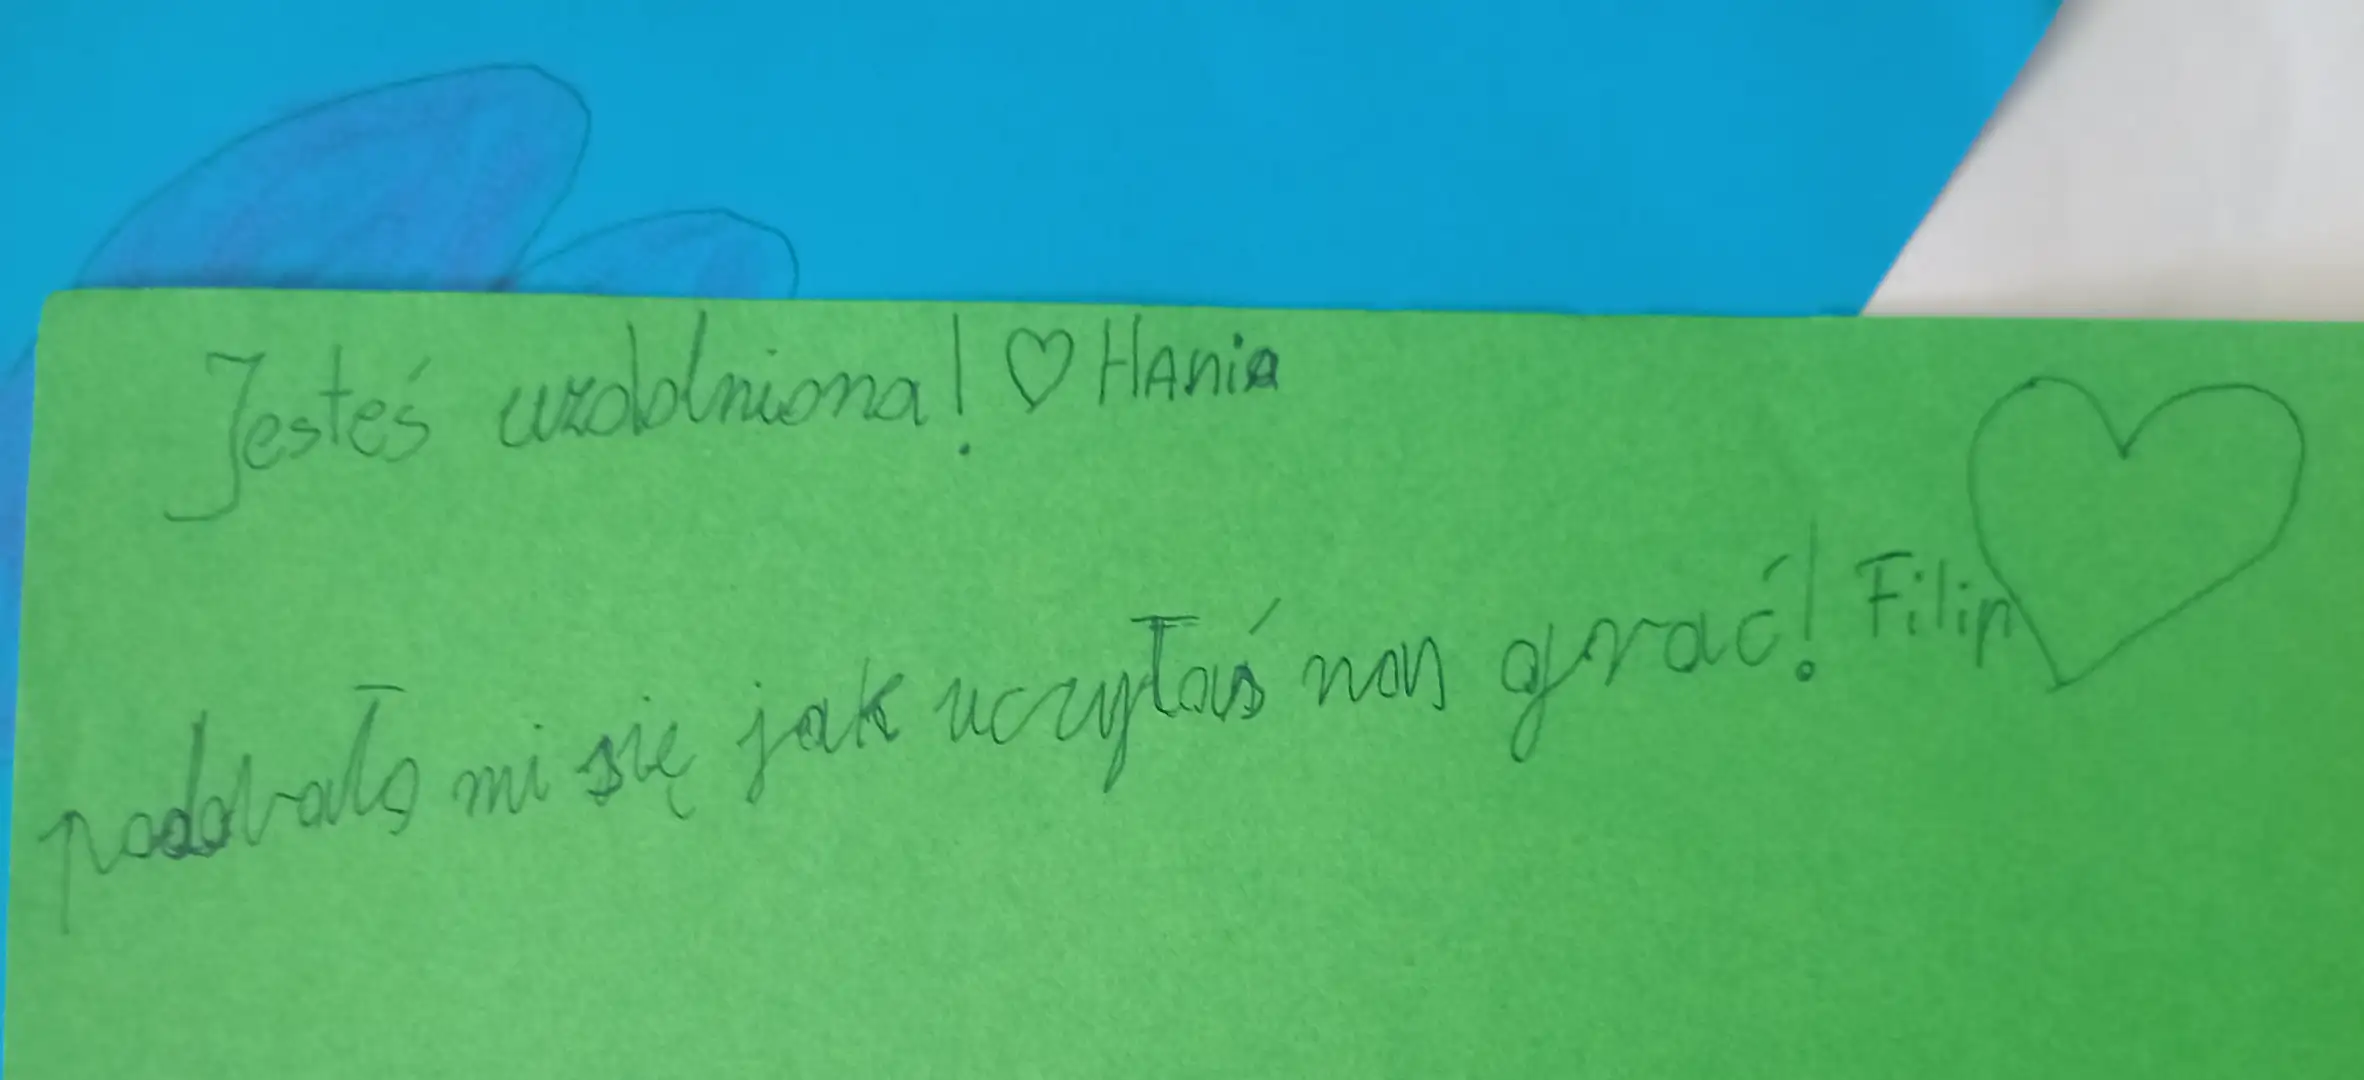 Jesteś uzdolniona! ♡ HAnia
podobało mi się jak uczyłaś nas grać! Filip ♡